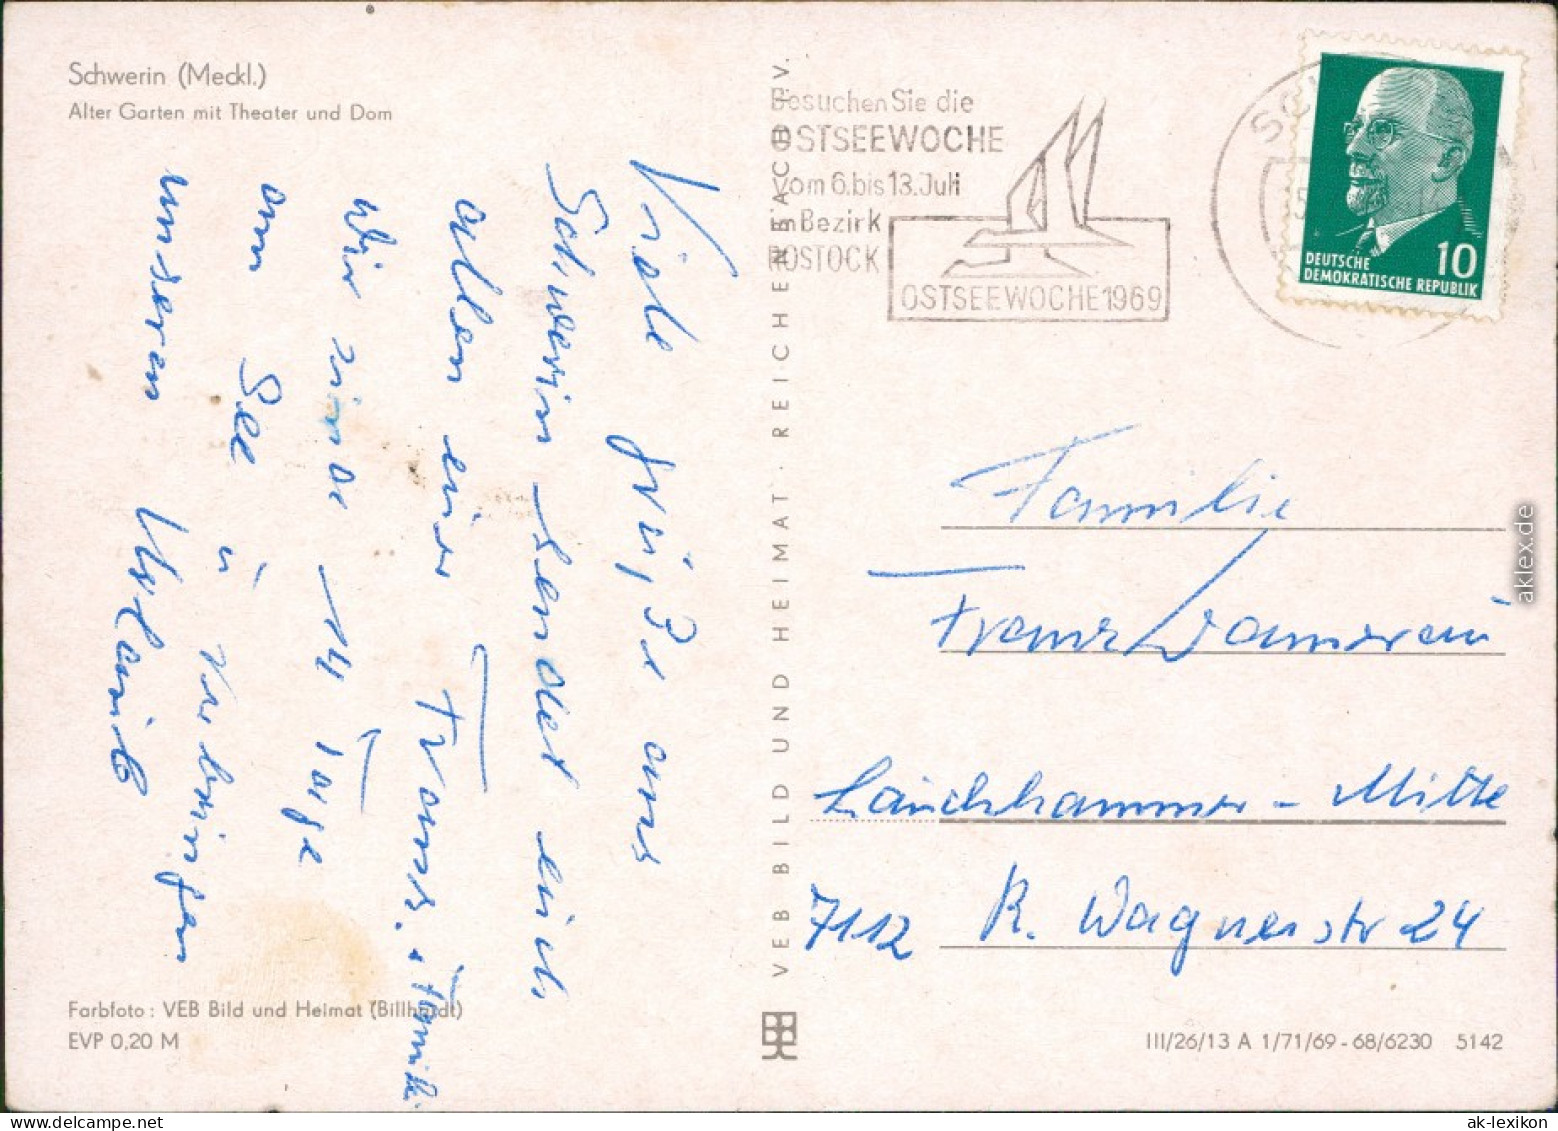 Schwerin (Meckl.)
Alter Garten mit Theater und Dom
Viele Grüße aus
Schwerin sendet euch
allen eure Franz. u. Familie
Wir sind 14 Tage
am See u. verbringen
unseren Urlaub
Farbfoto: VEB Bild und Heimat (Billhardt)
EVP 0,20 M
VEB BILD UND HEIMAT · REICHENBACH I. V.
Besuchen Sie die
OSTSEEWOCHE
vom 6. bis 13. Juli
im Bezirk
ROSTOCK
OSTSEEWOCHE 1969
DEUTSCHE
DEMOKRATISCHE REPUBLIK
10
Familie
Franz
Lauchhammer - Mitte
7112 R. Wagnerstr 24
III/26/13 A 1/71/69 - 68/6230 5142
aklex.de
ak-lexikon